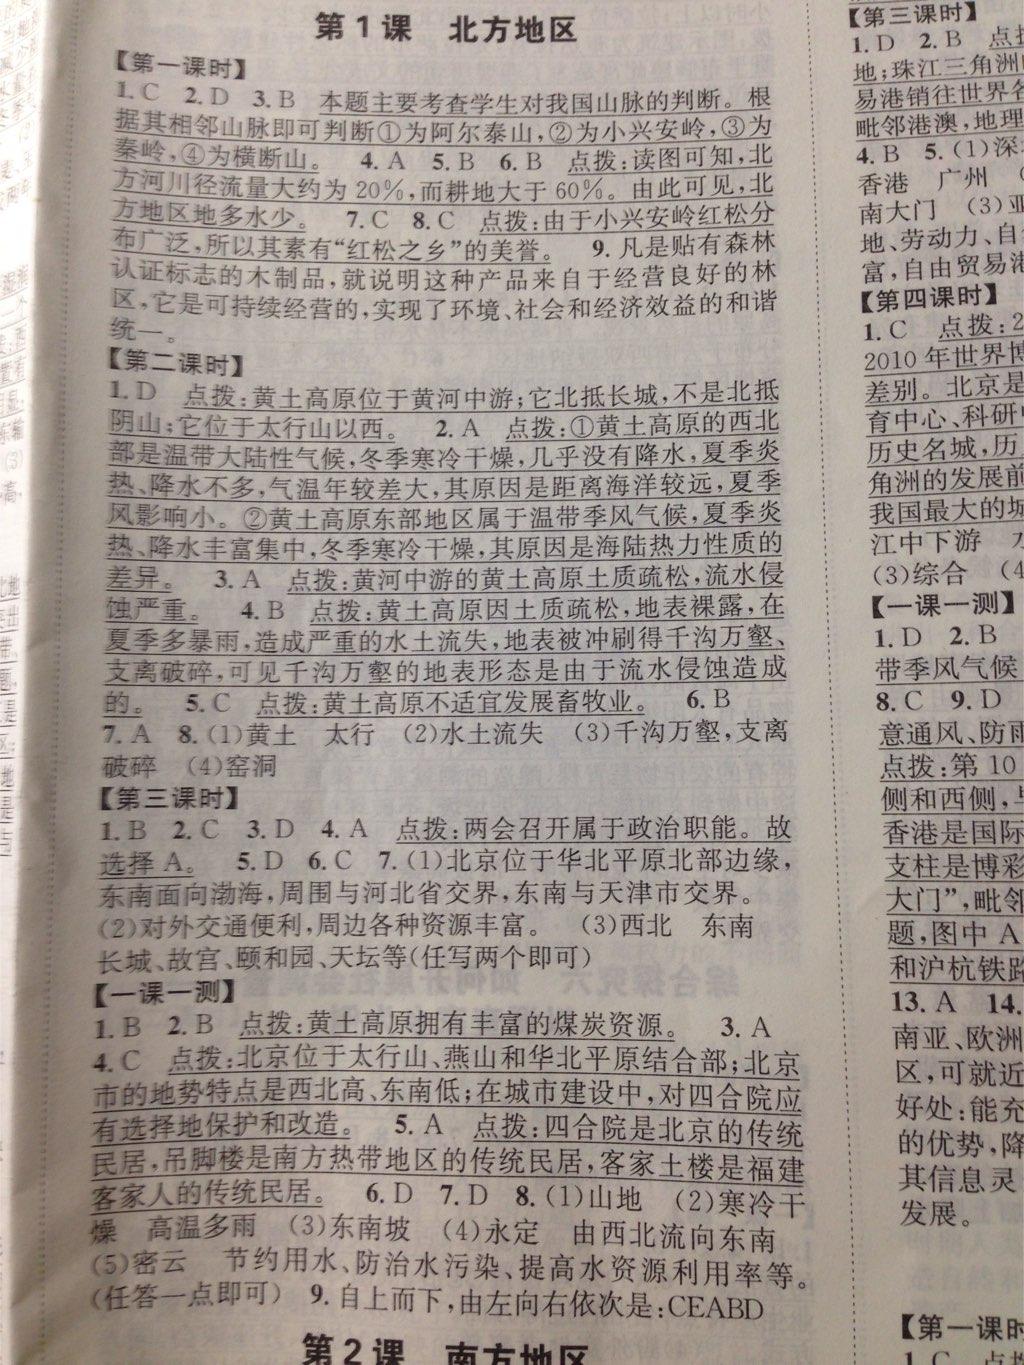 第1课 北方地区
【第一课时】
1.C 2.D 3.B 本题主要考查学生对我国山脉的判断。根
据其相邻山脉即可判断①为阿尔泰山,②为小兴安岭,③为
秦岭,④为横断山。 4.A 5.B 6.B 点拨:读图可知,北
方河川径流量大约为20%,而耕地大于60%。由此可见,北
方地区地多水少。 7.C 8.C 点拨:由于小兴安岭红松分
布广泛,所以其素有“红松之乡”的美誉。 9.凡是贴有森林
认证标志的木制品,就说明这种产品来自于经营良好的林
区,它是可持续经营的,实现了环境、社会和经济效益的和谐
统一。
【第二课时】
1.D 点拨:黄土高原位于黄河中游;它北抵长城,不是北抵
阴山;它位于太行山以西。 2.A 点拨:①黄土高原的西北
部是温带大陆性气候,冬季寒冷干燥,几乎没有降水,夏季炎
热、降水不多,气温年较差大,其原因是距离海洋较远,夏季
风影响小。②黄土高原东部地区属于温带季风气候,夏季炎
热、降水丰富集中,冬季寒冷干燥,其原因是海陆热力性质的
差异。 3.A 点拨:黄河中游的黄土高原土质疏松,流水侵
蚀严重。 4.B 点拨:黄土高原因土质疏松,地表裸露,在
夏季多暴雨,造成严重的水土流失,地表被冲刷得千沟万壑、
支离破碎,可见千沟万壑的地表形态是由于流水侵蚀造成
的。 5.C 点拨:黄土高原不适宜发展畜牧业。 6.B
7.A 8.(1)黄土 太行 (2)水土流失 (3)千沟万壑,支离
破碎 (4)窑洞
【第三课时】
1.B 2.C 3.D 4.A 点拨:两会召开属于政治职能。故
选择A。 5.D 6.C 7.(1)北京位于华北平原北部边缘,
东南面向渤海,周围与河北省交界,东南与天津市交界。
(2)对外交通便利,周边各种资源丰富。 (3)西北 东南
长城、故宫、颐和园、天坛等(任写两个即可)
【一课一测】
1.B 2.B 点拨:黄土高原拥有丰富的煤炭资源。 3.A
4.C 点拨:北京位于太行山、燕山和华北平原结合部;北京
市的地势特点是西北高、东南低;在城市建设中,对四合院应
有选择地保护和改造。 5.A 点拨:四合院是北京的传统
民居,吊脚楼是南方热带地区的传统民居,客家土楼是福建
客家人的传统民居。 6.D 7.D 8.(1)山地 (2)寒冷干
燥 高温多雨 (3)东南坡 (4)永定 由西北流向东南
(5)密云 节约用水、防治水污染、提高水资源利用率等。
(任答一点即可) 9.自上而下,由左向右依次是:CEABD
第2课 南方地区
【第三课时】
1.D 2.B 点拨
地;珠江三角洲
易港销往世界各
毗邻港澳,地理
4.B 5.(1)深
香港 广州
南大门 (3)亚
地、劳动力、自
富,自由贸易港
【第四课时】
1.C 点拨:2
2010年世界博
差别。北京是
育中心、科研
历史名城,历
角洲的发展前
我国最大的城
江中下游 水
(3)综合 (4
【一课一测】
1.D 2.B
带季风气候
8.C 9.D
意通风、防雨
点拨:第10
侧和西侧,
香港是国际
支柱是博彩
大门”,毗邻
题,图中A
和沪杭铁路
13.A 14.
南亚、欧洲
区,可就近
好处:能充
的优势,降
其信息灵
发展。
【第一课时
1.C 点